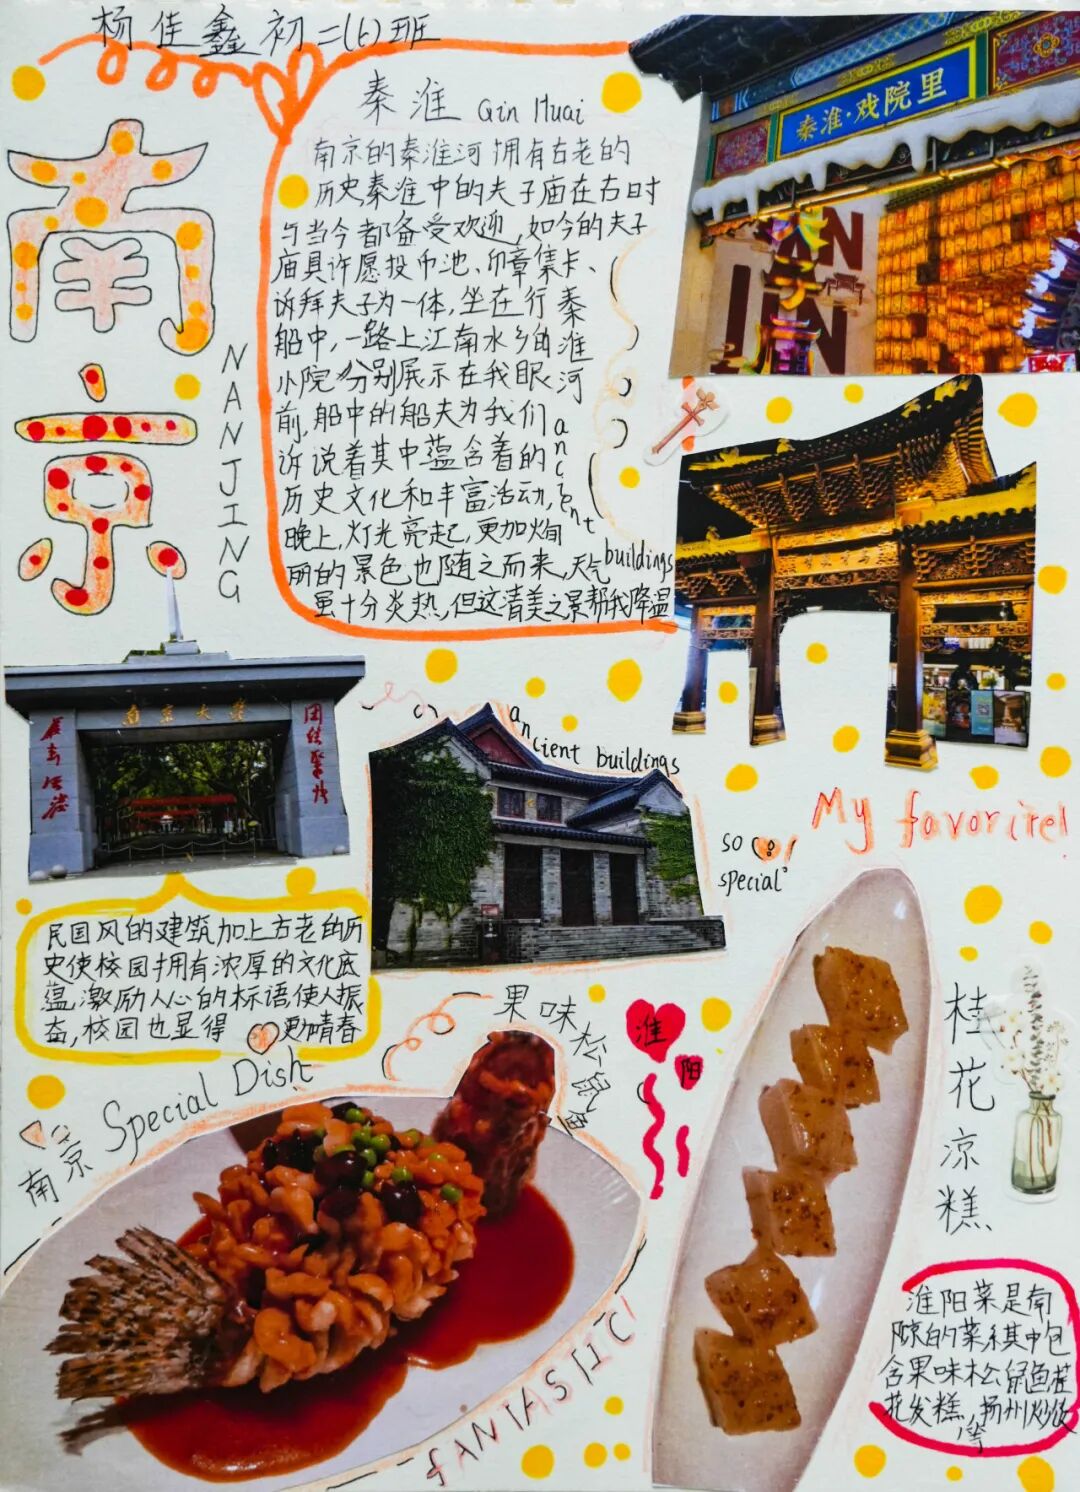 杨佳鑫初二(6)班
南京
NANJING
秦淮 Qin Huai
南京的秦淮河拥有古老的
历史秦淮中的夫子庙在古时
与当今都备受欢迎,如今的夫子
庙具许愿投币池、印章集卡、
诉拜夫子为一体,坐在行
船中,一路上江南水乡的
小院分别展示在我眼
前,船中的船夫为我们
诉说着其中蕴含着的
历史文化和丰富活动,
晚上,灯光亮起,更加绚
丽的景色也随之而来,天气
虽十分炎热,但这清美之景帮我降温
秦淮河
ancient
buildings
秦淮·戏院里
NAN
JIN
夫子庙
南京大学
团结紧张
ancient buildings
so
special
My favorite!
民国风的建筑加上古老的历
史使校园拥有浓厚的文化底
蕴,激励人心的标语使人振
奋,校园也显得更加青春
南京 Special Dish
果味松鼠鱼
淮阳
桂花凉糕
FANTASTIC!
淮阳菜是南
京的菜系其中包
含果味松鼠鱼桂
花发糕,扬州炒饭
等